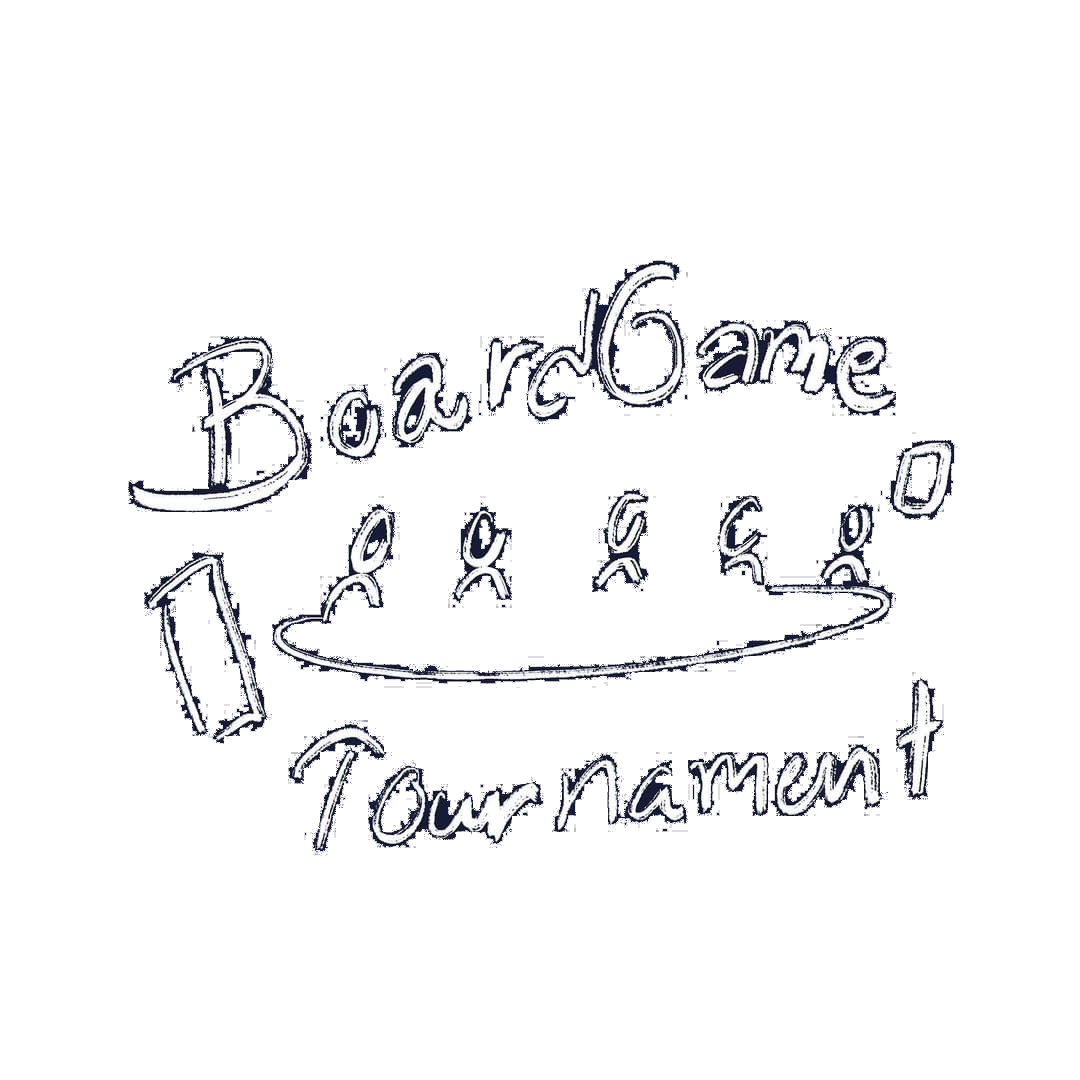 BoardGame
Tournament